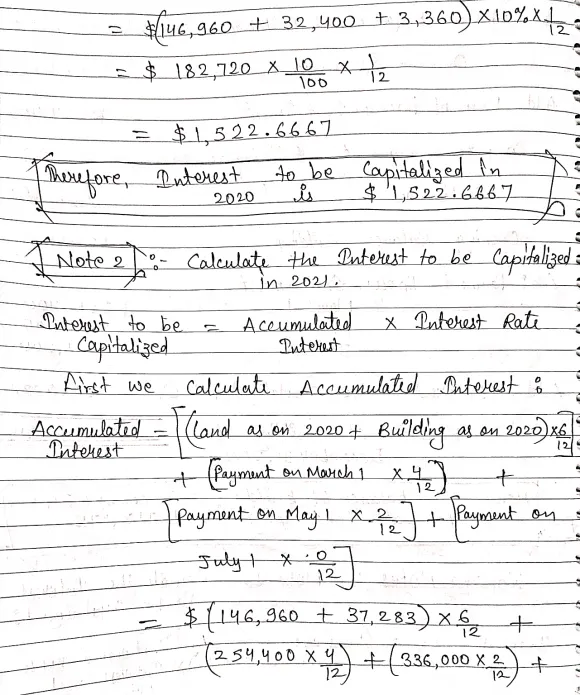 = $(146,960 + 32,400 + 3,360) × 10% × 1/12
= $ 182,720 × 10/100 × 1/12
= $1,522.6667
Therefore, Interest to be Capitalized in
2020 is $ 1,522.6667
Note 2 :- Calculate the Interest to be Capitalized
in 2021.
Interest to be = Accumulated × Interest Rate
Capitalized Interest
First we Calculate Accumulated Interest :
Accumulated = [(Land as on 2020 + Building as on 2020) × 6/12]
Interest
+ [Payment on March 1 × 4/12] +
[Payment on May 1 × 2/12] + [Payment on
July 1 × 0/12]
= $ (146,960 + 37,283) × 6/12 +
(254,400 × 4/12) + (336,000 × 2/12) +